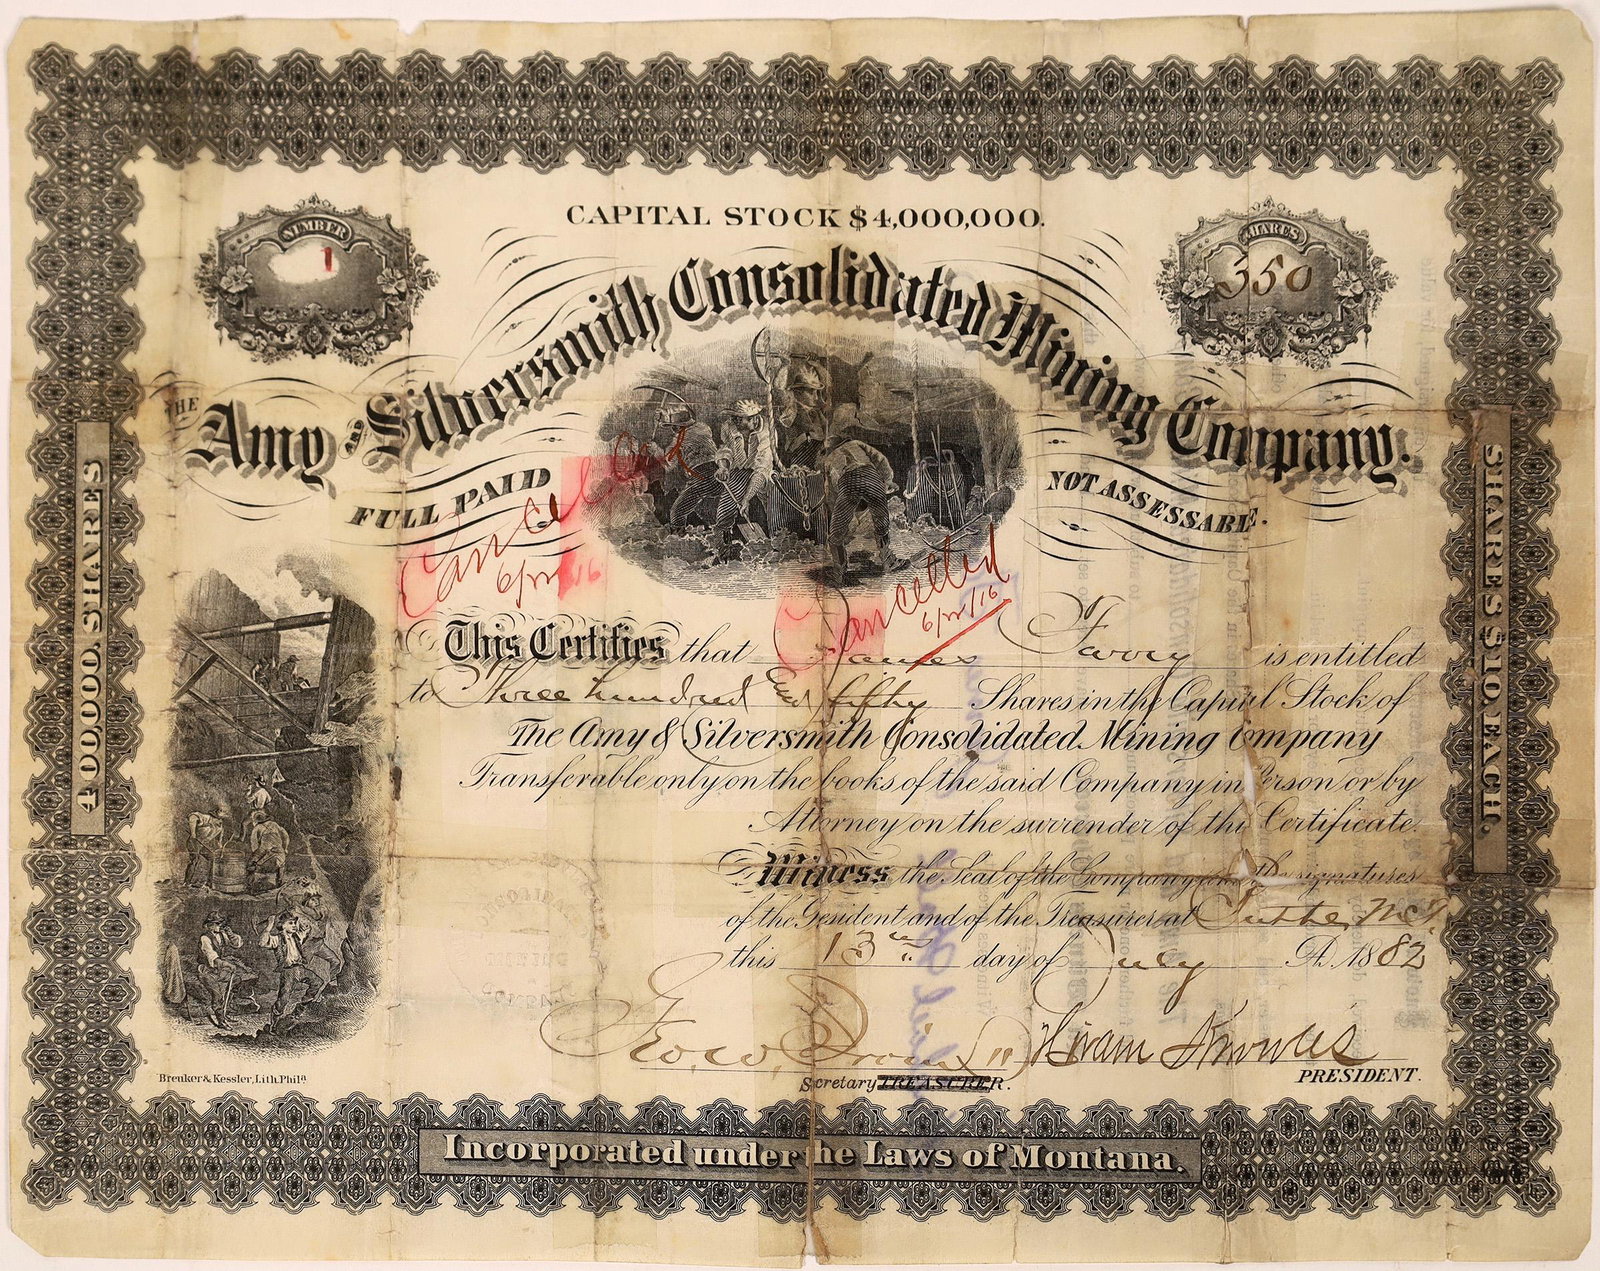 CAPITAL STOCK $4,000,000.
NUMBER
1
SHARES
350
THE Amy AND Silversmith Consolidated Mining Company.
FULL PAID
NOT ASSESSABLE.
Cancelled
Cancelled
400,000. SHARES
SHARES $10. EACH.
This Certifies that James is entitled
to Three hundred and fifty Shares in the Capital Stock of
The Amy & Silversmith Consolidated Mining Company
Transferable only on the books of the said Company in Person or by
Attorney on the surrender of this Certificate.
Witness the Seal of the Company and the signatures
of the President and of the Treasurer at Butte M.T.
this 13th day of July A.D. 1882
Hiram Knowles
Secretary TREASURER.
PRESIDENT.
Breuker & Kessler, Lith. Phila.
Incorporated under the Laws of Montana.